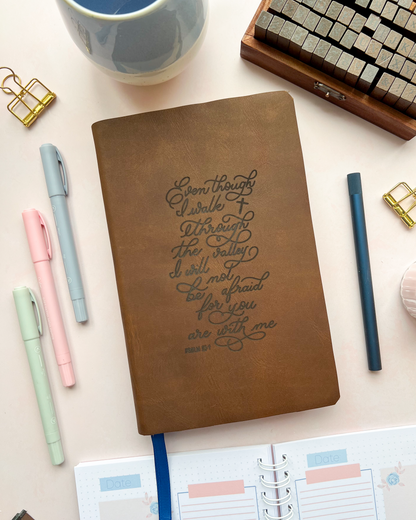 Even though
I walk
through
the valley
I will not
be afraid
for you
are with me
Date
Date